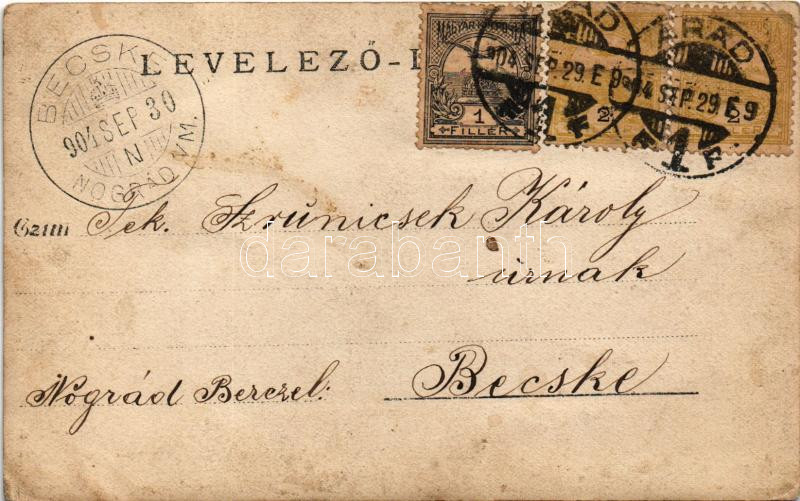 LEVELEZŐ-L
MAGYAR KIR. POSTA
1
FILLÉR
2
2
ARAD
904 SEP. 29. E 9
1 F
ARAD
904 SEP. 29 E 9
1 F
BECSKE
904 SEP 30
N
NOGRÁD VM.
Czim Tek. Szrünicsek Károly
darabanth
úrnak
Nográd Berczel. Becske